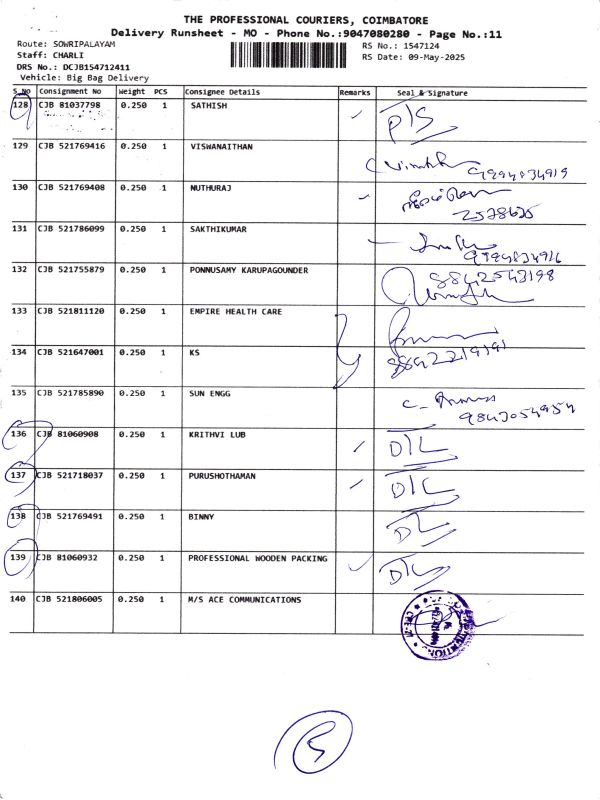 THE PROFESSIONAL COURIERS, COIMBATORE
Delivery Runsheet - MO - Phone No.:9047080280 - Page No.:11
Route: SOWRIPALAYAM RS No.: 1547124
Staff: CHARLI RS Date: 09-May-2025
DRS No.: DCJB154712411
Vehicle: Big Bag Delivery
S.No Consignment No Weight PCS Consignee Details Remarks Seal & Signature
128 CJB 81037798 0.250 1 SATHISH P/S
129 CJB 521769416 0.250 1 VISWANAITHAN 9994834919
130 CJB 521769408 0.250 1 NUTHURAJ 2578625
131 CJB 521786099 0.250 1 SAKTHIKUMAR 9994834916
132 CJB 521755879 0.250 1 PONNUSAMY KARUPAGOUNDER 8842543198
133 CJB 521811120 0.250 1 EMPIRE HEALTH CARE
134 CJB 521647001 0.250 1 KS 8842219191
135 CJB 521785890 0.250 1 SUN ENGG 9843054954
136 CJB 81060908 0.250 1 KRITHVI LUB D/L
137 CJB 521718037 0.250 1 PURUSHOTHAMAN D/L
138 CJB 521769491 0.250 1 BINNY D/L
139 CJB 81060932 0.250 1 PROFESSIONAL WOODEN PACKING D/L
140 CJB 521806005 0.250 1 M/S ACE COMMUNICATIONS
5